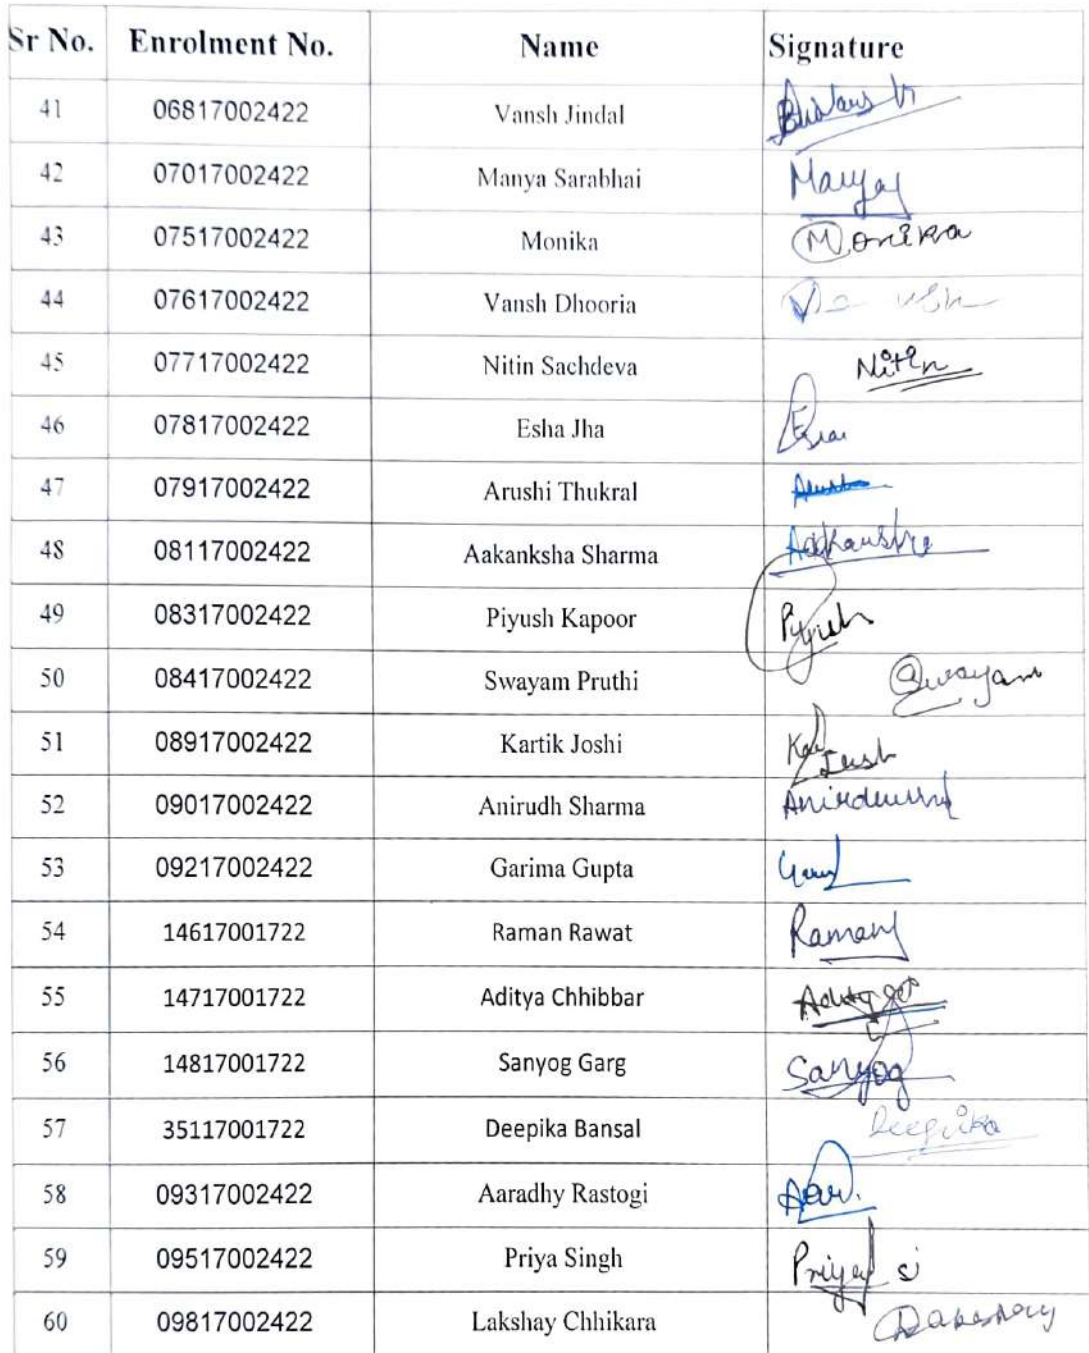 Sr No. Enrolment No. Name Signature
41 06817002422 Vansh Jindal
42 07017002422 Manya Sarabhai Manya
43 07517002422 Monika Monika
44 07617002422 Vansh Dhooria
45 07717002422 Nitin Sachdeva Nitin
46 07817002422 Esha Jha
47 07917002422 Arushi Thukral
48 08117002422 Aakanksha Sharma
49 08317002422 Piyush Kapoor Piyush
50 08417002422 Swayam Pruthi Swayam
51 08917002422 Kartik Joshi
52 09017002422 Anirudh Sharma
53 09217002422 Garima Gupta
54 14617001722 Raman Rawat Raman
55 14717001722 Aditya Chhibbar
56 14817001722 Sanyog Garg Sanyog
57 35117001722 Deepika Bansal Deepika
58 09317002422 Aaradhy Rastogi
59 09517002422 Priya Singh Priya
60 09817002422 Lakshay Chhikara